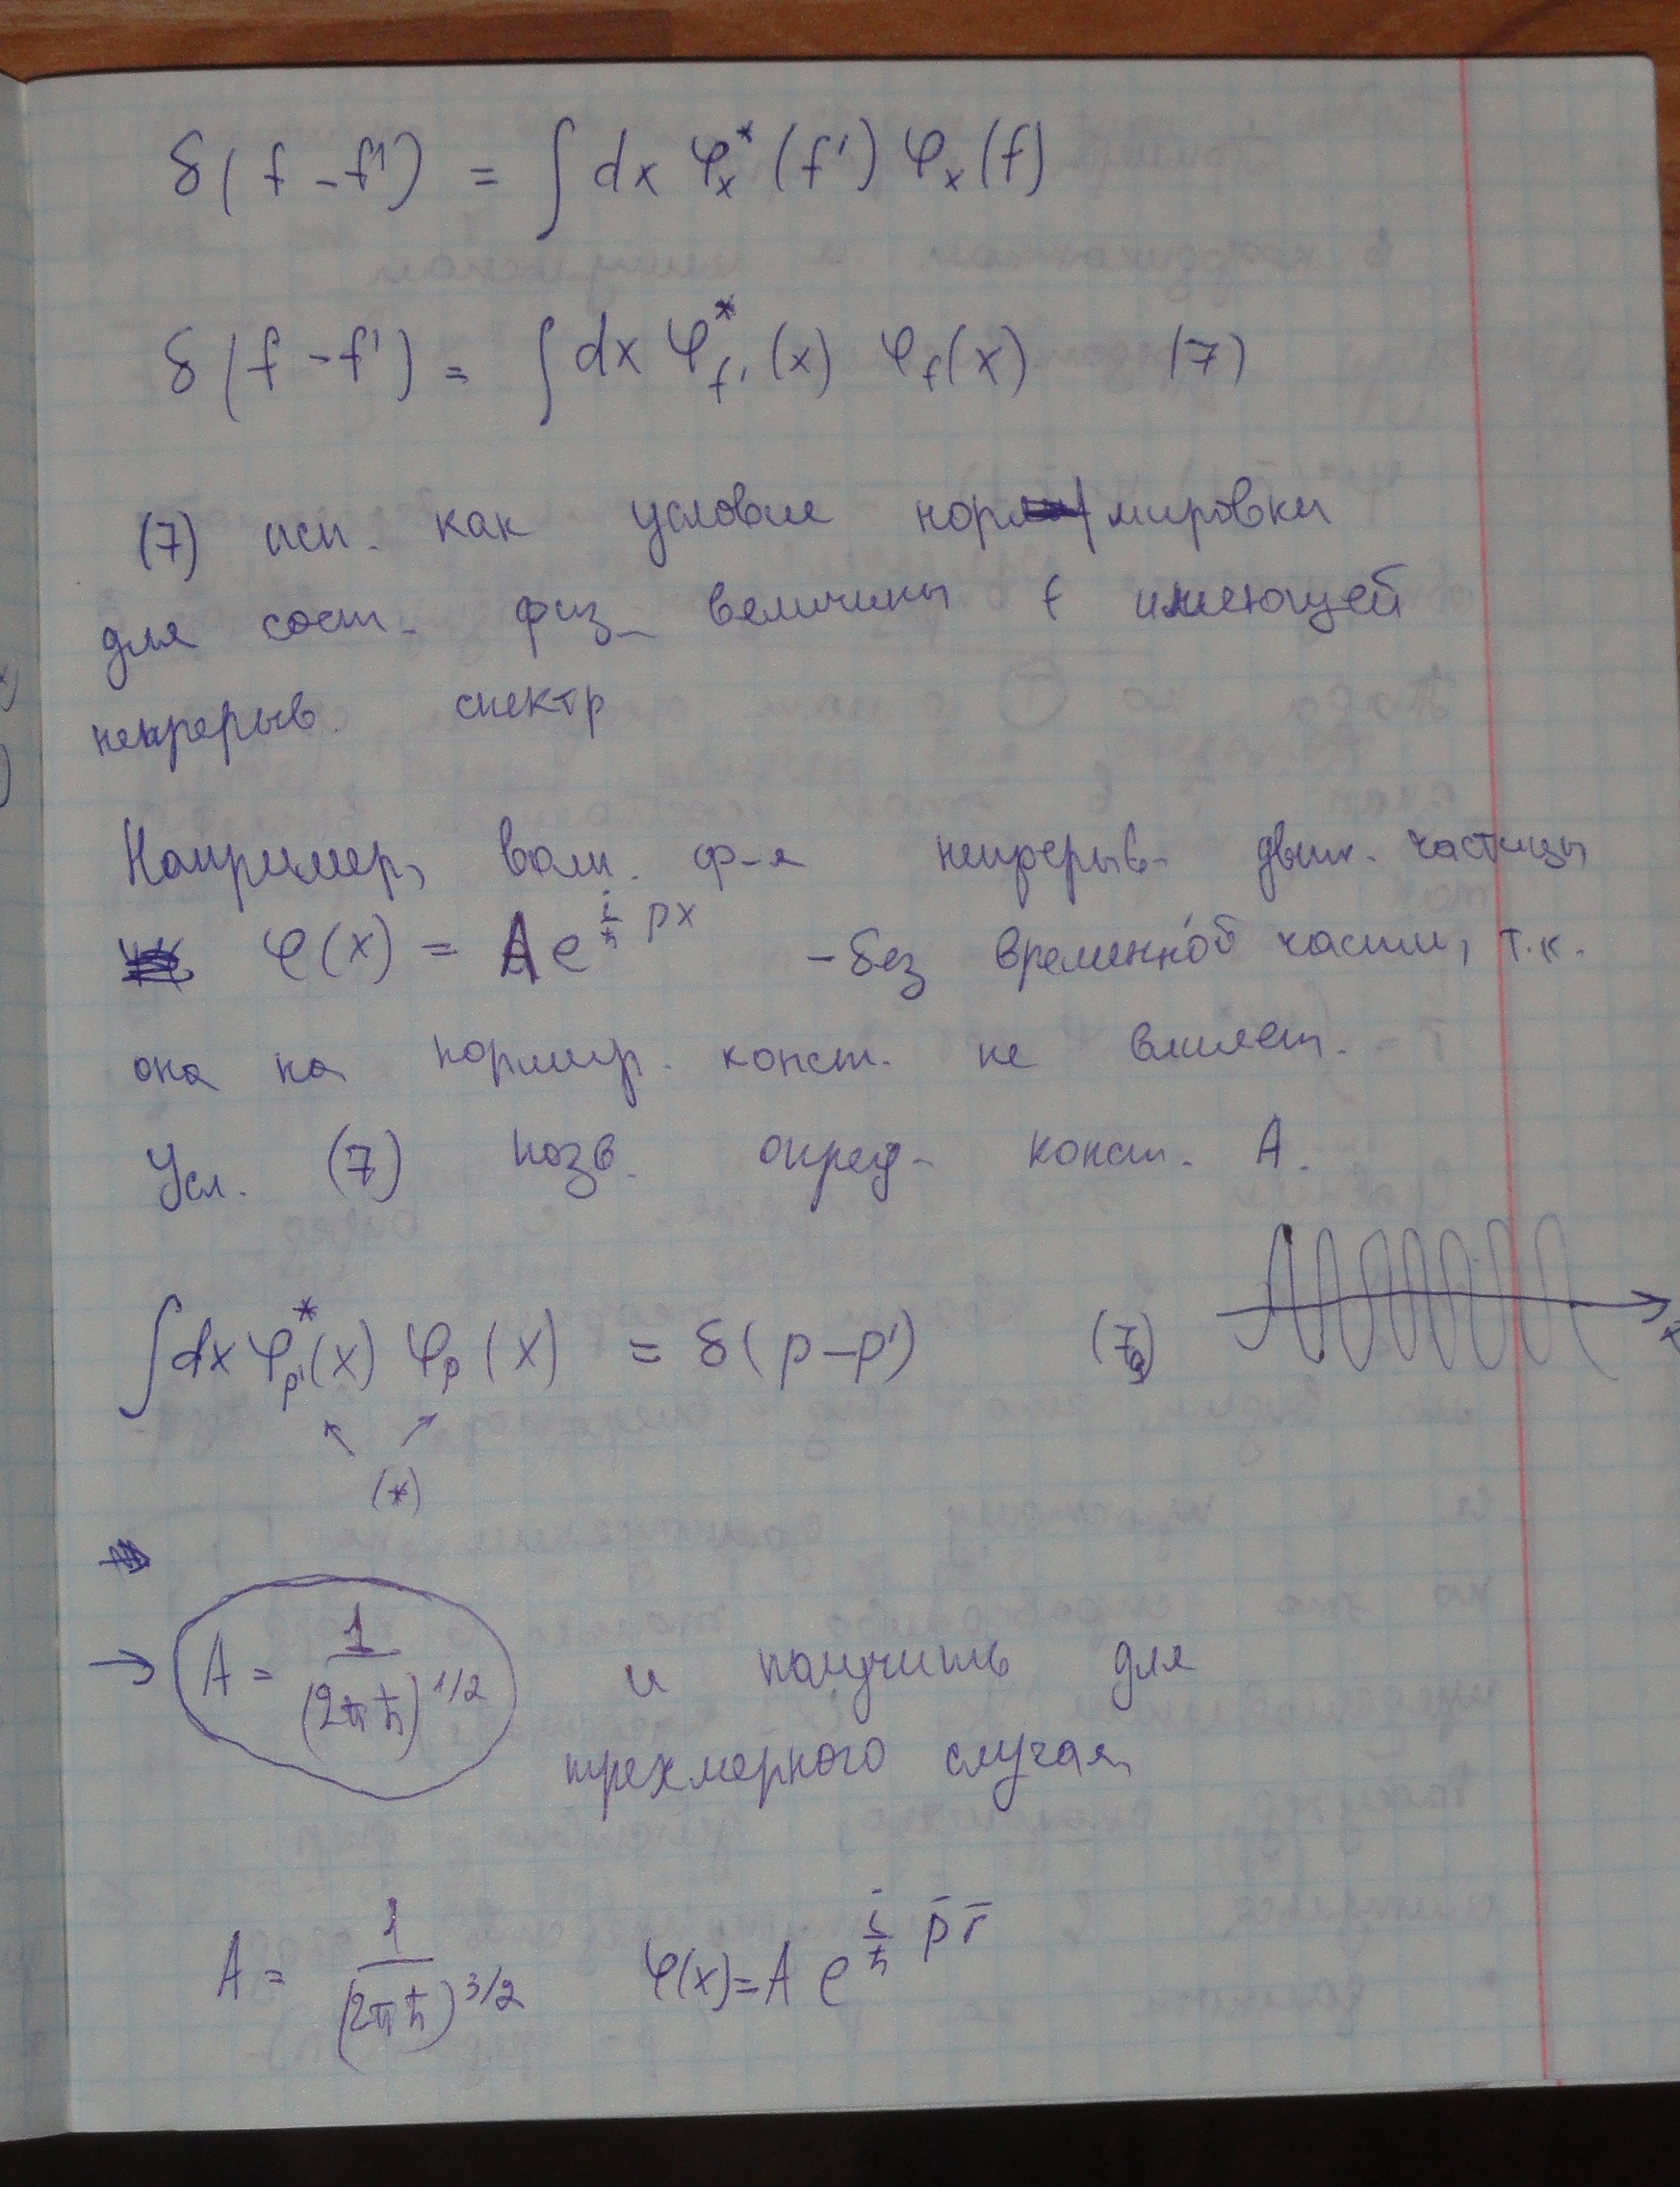 δ(f - f') = ∫ dx φₓ*(f') φₓ(f)
δ(f - f') = ∫ dx φ*_f'(x) φ_f(x) (7)
(7) исп. как условие нормировки
для сост. физ. величины f имеющей
непрерыв. спектр
Например, волн. ф-я непрерыв. движ. частицы
φ(x) = A e^{i/ħ px} - без временно́й части, т.к.
она на нормир. конст. не влияет.
Усл. (7) позв. опред. конст. A.
∫ dx φ*_p'(x) φ_p(x) = δ(p - p') (7a)
(*)
→ A = 1/(2πħ)^{1/2} и получить для
трехмерного случая
A = 1/(2πħ)^{3/2} φ(x) = A e^{i/ħ p̄ r̄}